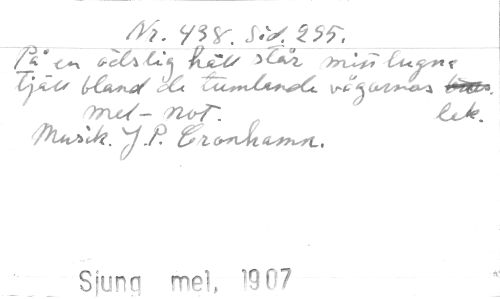 Nr. 438. Sid. 295.
På en ödslig häll står min lugna
tjäll bland de tumlande vågornas
mel-not. lek.
Musik. J. P. Cronhamn.
Sjung mel, 1907